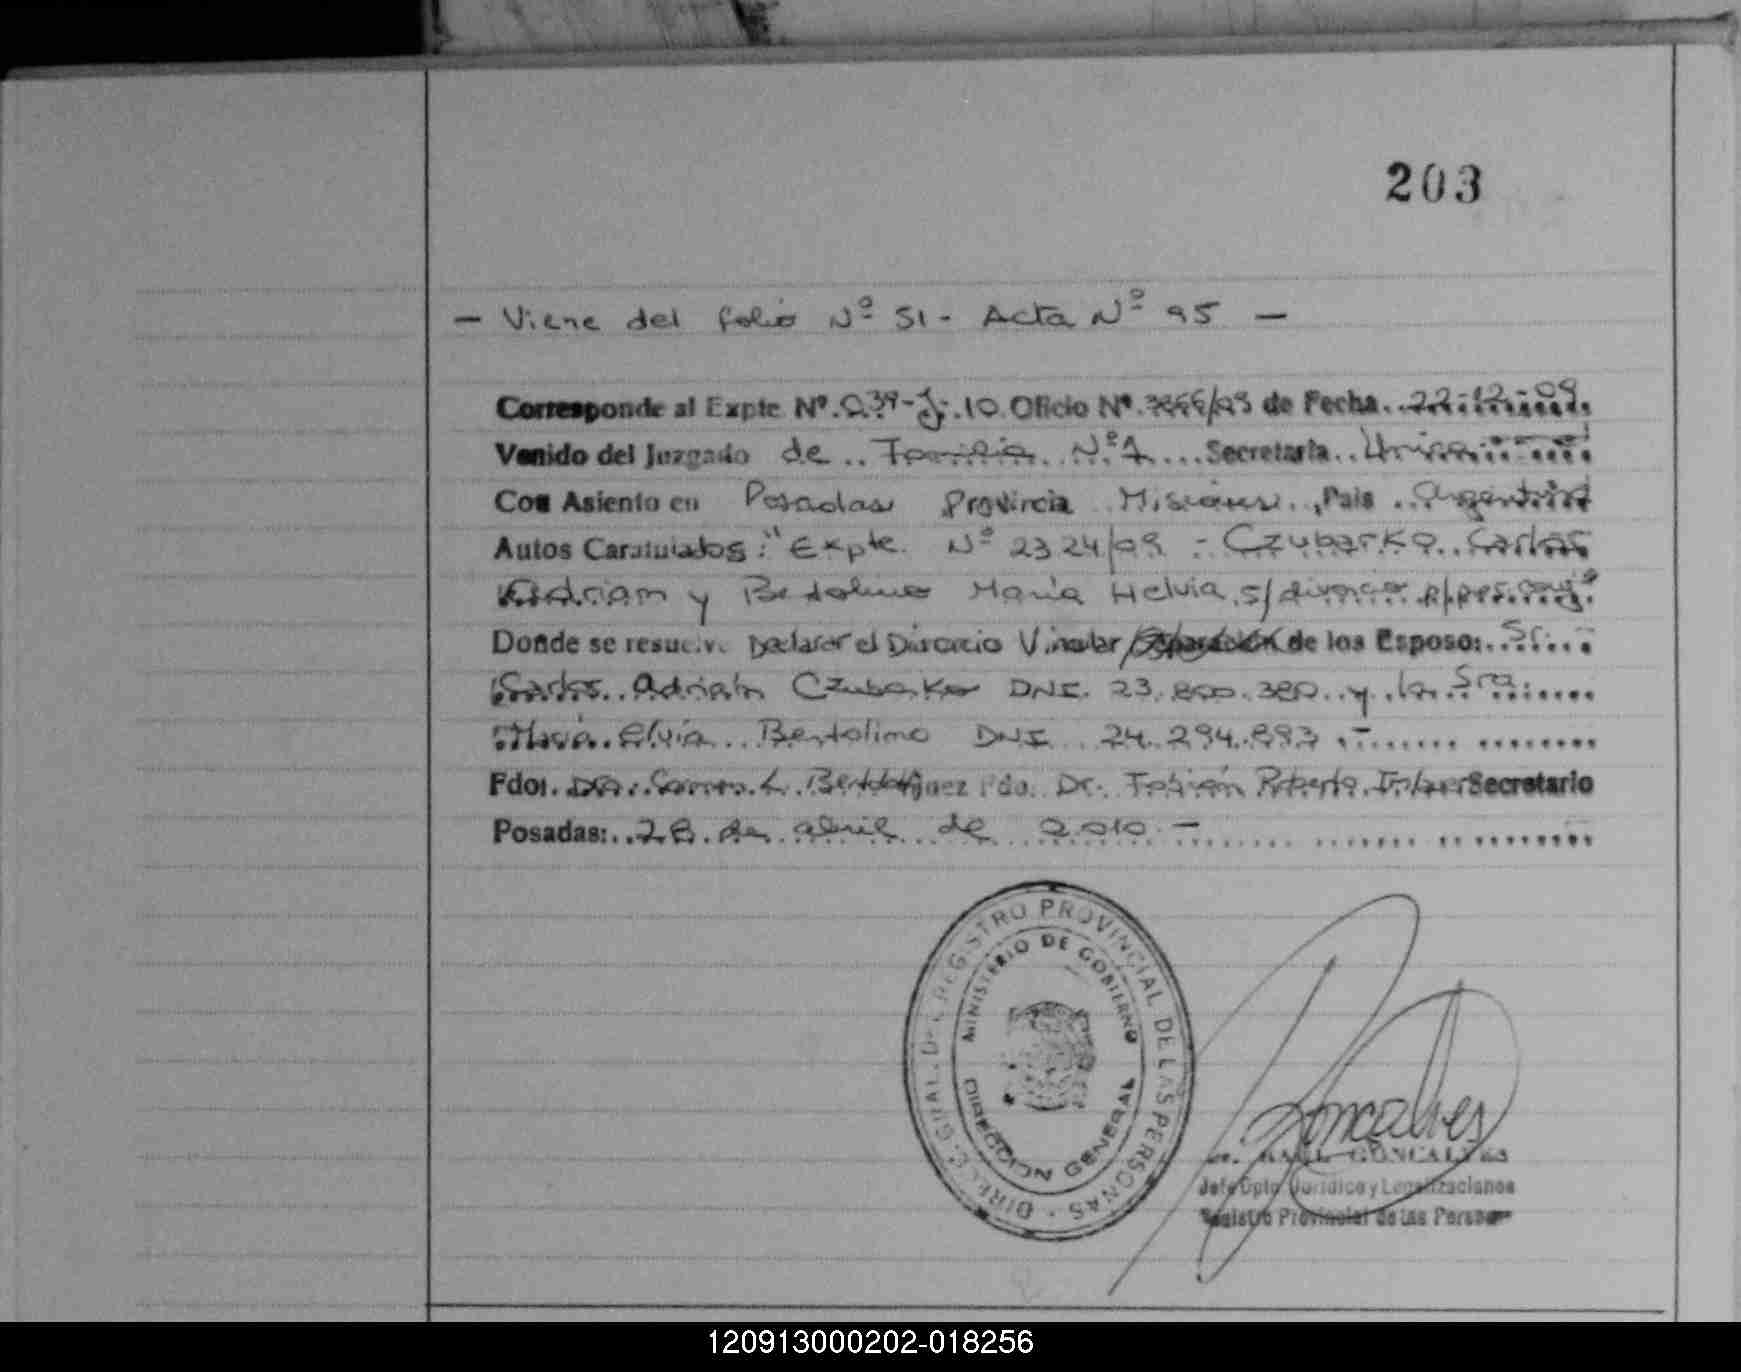 203
- Viene del folio Nº 51 - Acta Nº 95 -
Corresponde al Expte Nº. 039-J-10 Oficio Nº. /09 de Fecha. 22-12-09
Venido del Juzgado de Familia Nº 1 Secretaria Unica
Con Asiento en Posadas Provincia Misiones, Pais Argentina
Autos Caratulados: "Expte. Nº 2324/09 - Czubarko Carlos
Adrian y Bertolino Maria Helvia s/ divorcio p/pres. conj.
Donde se resuelve Declarar el Divorcio Vincular / de los Esposo: Sr. -
Carlos Adrián Czubarko DNI. 23.800.380 y la Sra.
María Elvia Bertolino DNI 24.294.893.-
Fdo: Dra. L. Juez Fdo. Dr. Fabián Roberto Secretario
Posadas: 28 de abril de 2010.-
DIREC. GRAL. DEL REGISTRO PROVINCIAL DE LAS PERSONAS
MINISTERIO DE GOBIERNO
DIRECCION GENERAL
Goncalves
Dr. RAUL GONCALVES
Jefe Dpto. Jurídico y Legalizaciones
Registro Provincial de las Personas
120913000202-018256